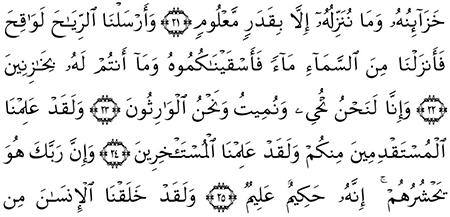 خَزَآئِنُهُۥ وَمَا نُنَزِّلُهُۥٓ إِلَّا بِقَدَرٍ مَّعْلُومٍ ﴿٢١﴾ وَأَرْسَلْنَا ٱلرِّيَٰحَ لَوَٰقِحَ
فَأَنزَلْنَا مِنَ ٱلسَّمَآءِ مَآءً فَأَسْقَيْنَٰكُمُوهُ وَمَآ أَنتُمْ لَهُۥ بِخَٰزِنِينَ
﴿٢٢﴾ وَإِنَّا لَنَحْنُ نُحْىِۦ وَنُمِيتُ وَنَحْنُ ٱلْوَٰرِثُونَ ﴿٢٣﴾ وَلَقَدْ عَلِمْنَا
ٱلْمُسْتَقْدِمِينَ مِنكُمْ وَلَقَدْ عَلِمْنَا ٱلْمُسْتَـْٔخِرِينَ ﴿٢٤﴾ وَإِنَّ رَبَّكَ هُوَ
يَحْشُرُهُمْ ۚ إِنَّهُۥ حَكِيمٌ عَلِيمٌ ﴿٢٥﴾ وَلَقَدْ خَلَقْنَا ٱلْإِنسَٰنَ مِن